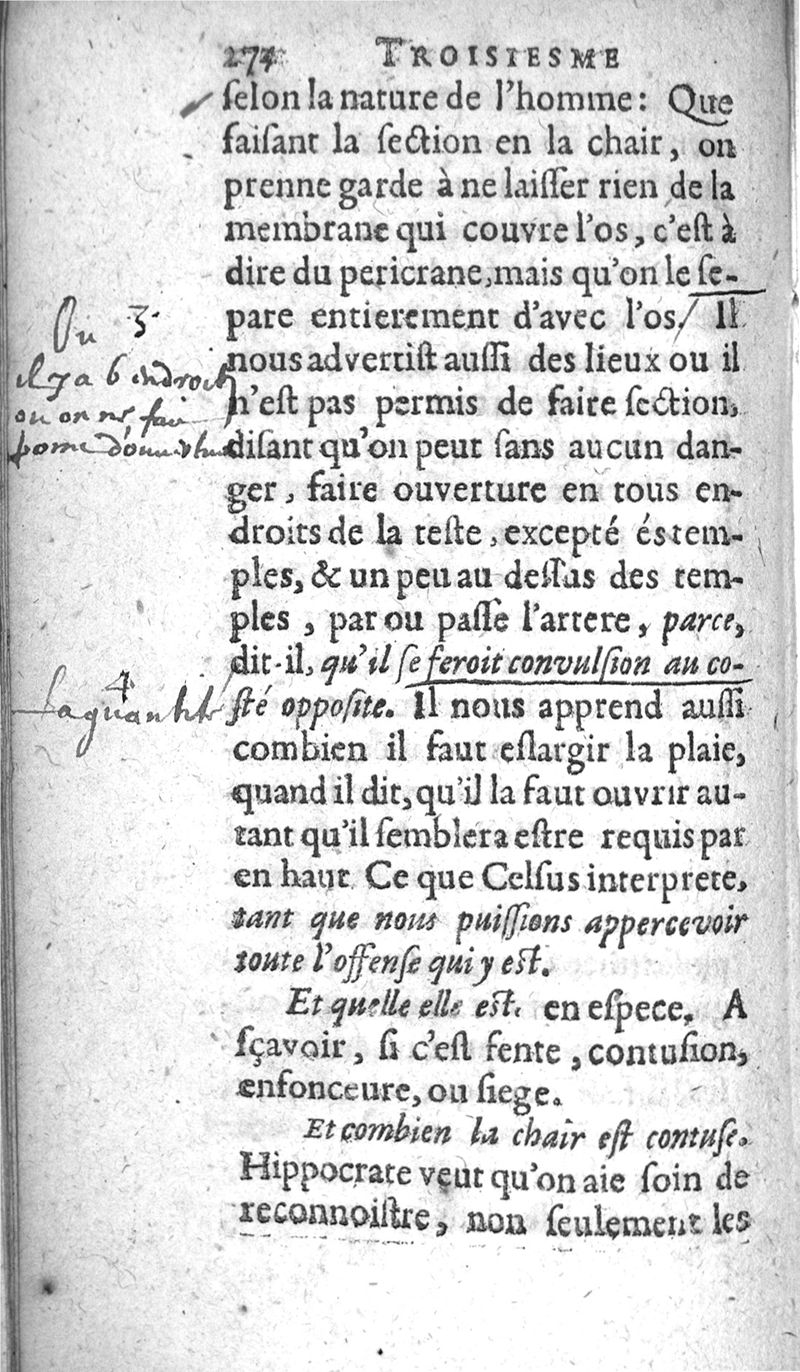 274 TROISIESME
selon la nature de l'homme: Que
faisant la section en la chair, on
prenne garde à ne laisser rien de la
membrane qui couvre l'os, c'est à
dire du pericrane, mais qu'on le se-
pare entierement d'avec l'os. Il
nous advertist aussi des lieux ou il
n'est pas permis de faire section,
disant qu'on peut sans aucun dan-
ger, faire ouverture en tous en-
droits de la teste, excepté és tem-
ples, & un peu au dessus des tem-
ples, par ou passe l'artere, parce,
dit-il, qu'il se feroit convulsion au co-
sté opposite. Il nous apprend aussi
combien il faut eslargir la plaie,
quand il dit, qu'il la faut ouvrir au-
tant qu'il semblera estre requis par
en haut. Ce que Celsus interprete,
tant que nous puissions appercevoir
toute l'offense qui y est.
Et quelle elle est, en espece. A
sçavoir, si c'est fente, contusion,
enfonceure, ou siege.
Et combien la chair est contuse.
Hippocrate veut qu'on aie soin de
reconnoistre, non seulement les
3
il y a 6 endroit
ou on ne
4
La quantité